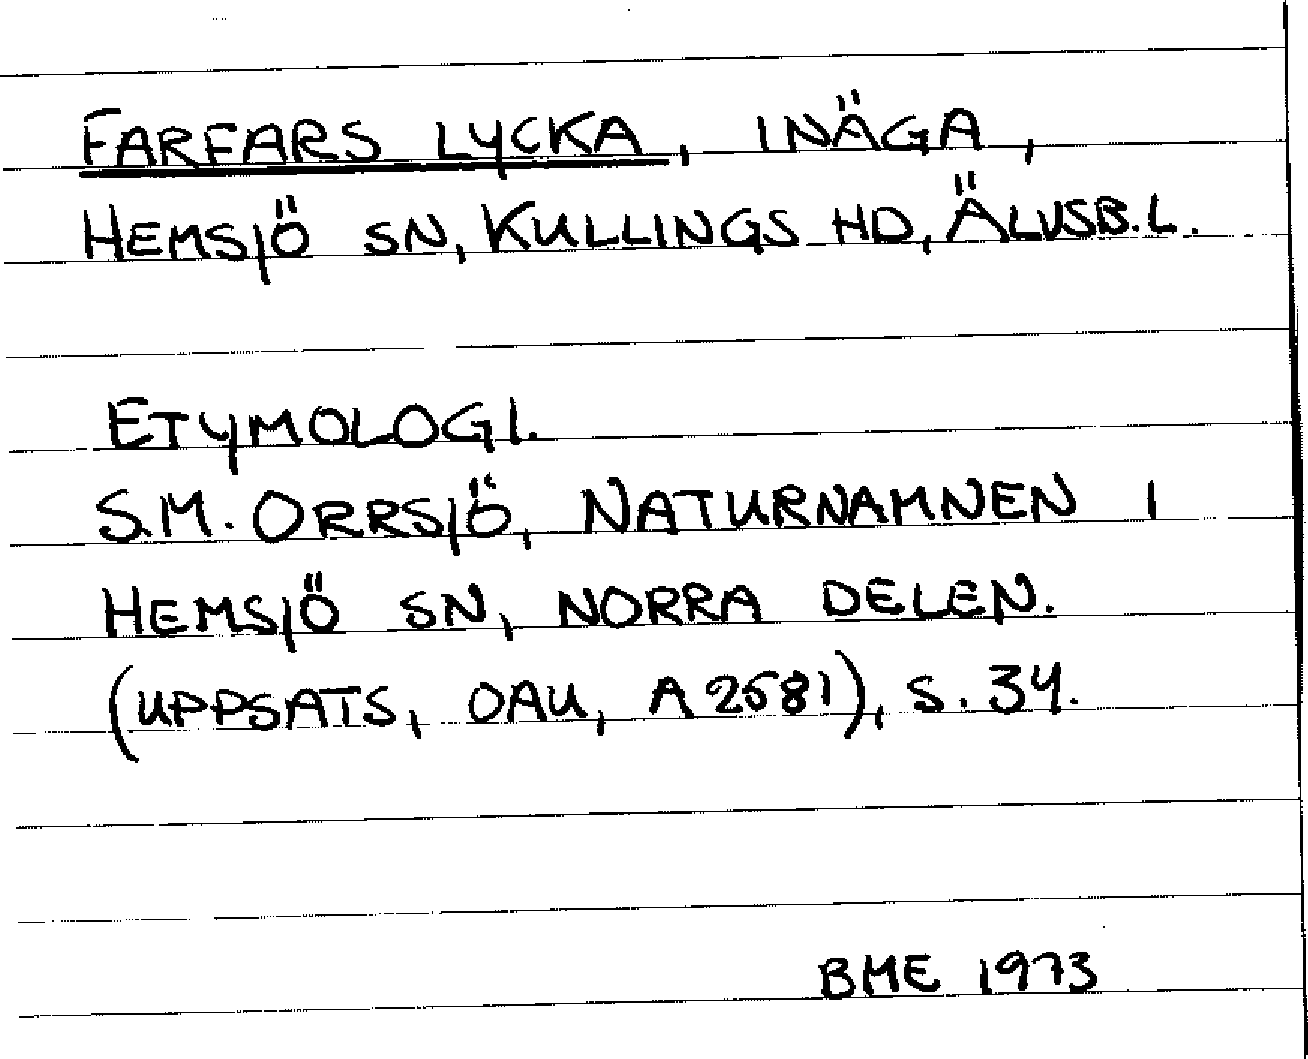 FARFARS LYCKA, INÄGA,
HEMSJÖ SN, KULLINGS HD, ÄLVSB.L.
ETYMOLOGI.
S.M. ORRSJÖ, NATURNAMNEN I
HEMSJÖ SN, NORRA DELEN.
(UPPSATS, OAU, A 2581), S. 34.
BME 1973